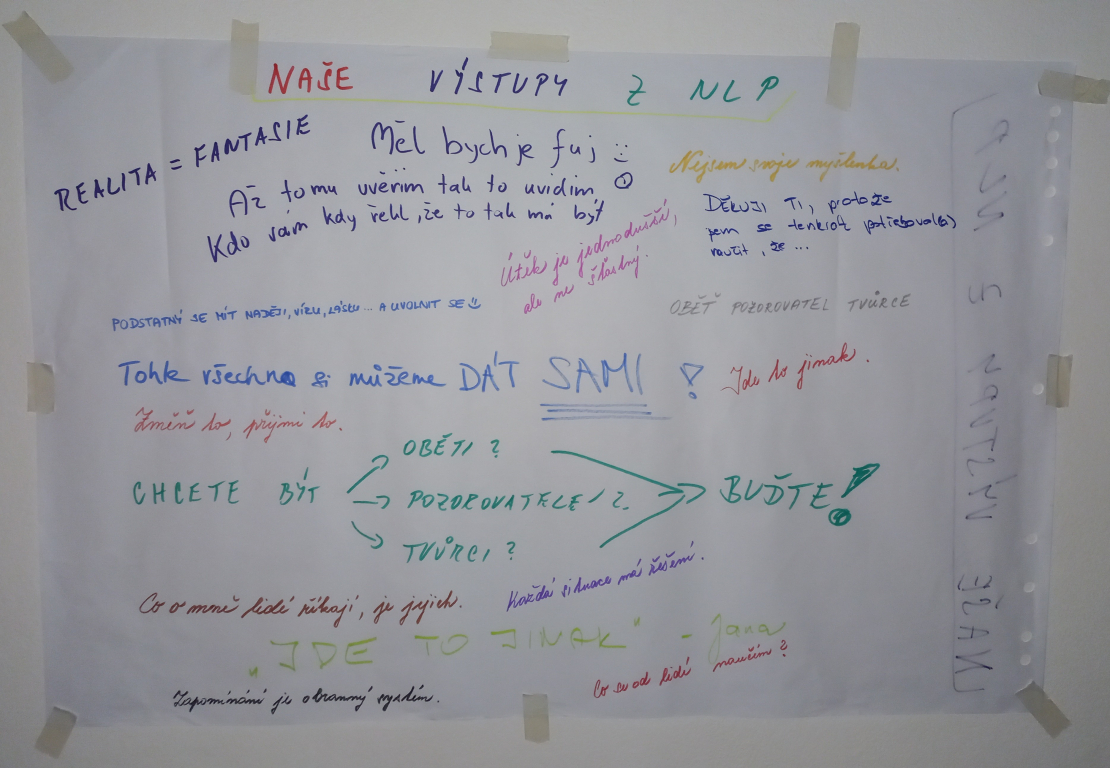 NAŠE VÝSTUPY Z NLP
REALITA = FANTASIE
Měl bych je fuj
Až tomu uvěřím tak to uvidím
Kdo vám kdy řekl, že to tak má být
Nejsem svoje myšlenka.
DĚKUJI TI, protože
jsem se tenkrát potřeboval(a)
naučit, že ...
Útěk je jednodušší,
ale ne šťastný.
PODSTATNÝ SE MÍT NADĚJI, VÍRU, LÁSKU ... A UVOLNIT SE
OBĚŤ POZOROVATEL TVŮRCE
Tohle všechno si můžeme DÁT SAMI !
Jde to jinak.
Změň to, přijmi to.
CHCETE BÝT
OBĚTI ?
POZOROVATELÉ ?
TVŮRCI ?
BUĎTE!
Co o mně lidé říkají, je jejich.
Každá situace má řešení.
„JDE TO JINAK" - Jana
Co se od lidí naučím ?
Zapomínání je obranný systém.